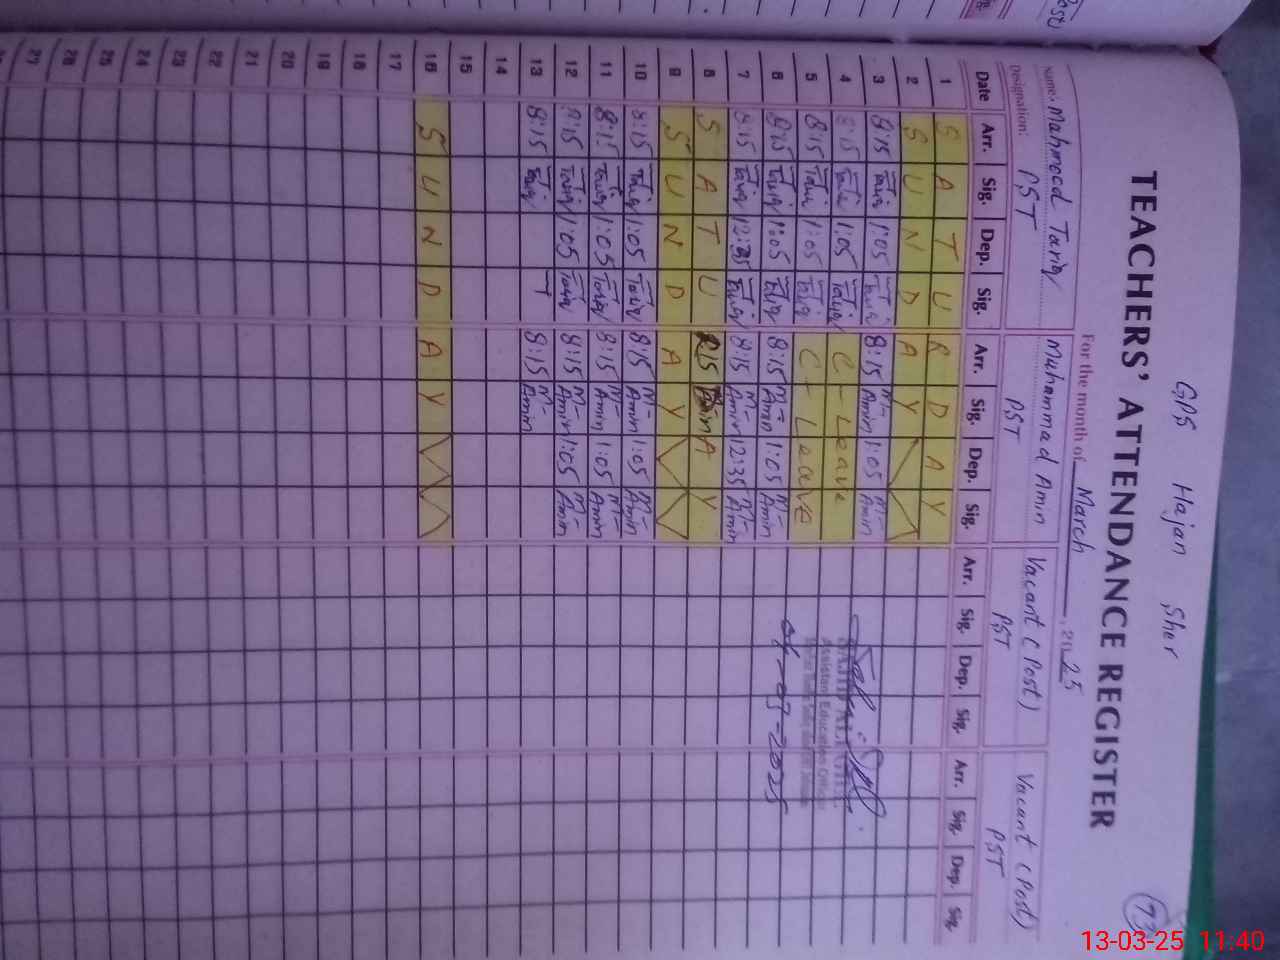 GPS Hajan Sher
73
TEACHERS' ATTENDANCE REGISTER
For the month of March, 2025
Name: Mahmood Tariq Muhammad Amin Vacant (Post) Vacant (Post)
Designation: PST PST PST PST
Date Arr. Sig. Dep. Sig. Arr. Sig. Dep. Sig. Arr. Sig. Dep. Sig. Arr. Sig. Dep. Sig.
1 S A T U R D A Y
2 S U N D A Y
3 8:15 Tariq 1:05 Tariq 8:15 M-Amin 1:05 M-Amin
4 8:15 Tariq 1:05 Tariq C-Leave
5 8:15 Tariq 1:05 Tariq C-Leave
6 8:15 Tariq 1:05 Tariq 8:15 M-Amin 1:05 M-Amin
7 8:15 Tariq 12:35 Tariq 8:15 M-Amin 12:35 M-Amin
8 S A T U A Y
9 S U N D A Y
10 8:15 Tariq 1:05 Tariq 8:15 M-Amin 1:05 M-Amin
11 8:15 Tariq 1:05 Tariq 8:15 M-Amin 1:05 M-Amin
12 8:15 Tariq 1:05 Tariq 8:15 M-Amin 1:05 M-Amin
13 8:15 Tariq T 8:15 M-Amin
14
15
16 S U N D A Y
17
18
19
20
21
22
23
24
25
26
27
Assistant Education Officer
-03-2025
13-03-25 11:40